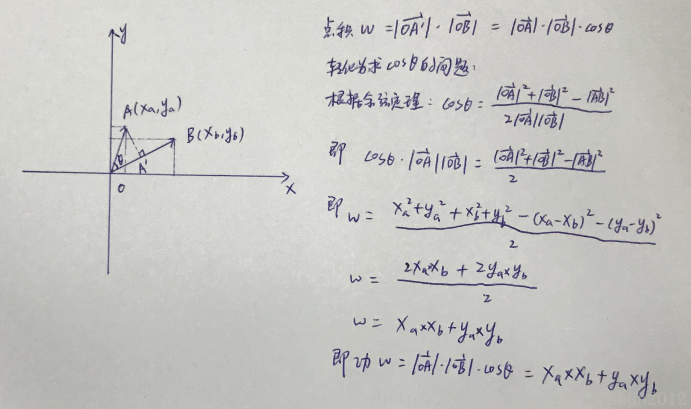 y
A(xa,ya)
B(xb,yb)
θ
A'
O
x
点积 W = |OA'|·|OB| = |OA|·|OB|·cosθ
转化为求cosθ的问题:
根据余弦定理: cosθ = (|OA|²+|OB|²-|AB|²) / (2|OA||OB|)
即 cosθ·|OA||OB| = (|OA|²+|OB|²-|AB|²) / 2
即 W = (xa²+ya²+xb²+yb²-(xa-xb)²-(ya-yb)²) / 2
W = (2xa×xb + 2ya×yb) / 2
W = xa×xb+ya×yb
即功 W = |OA|·|OB|·cosθ = xa×xb+ya×yb